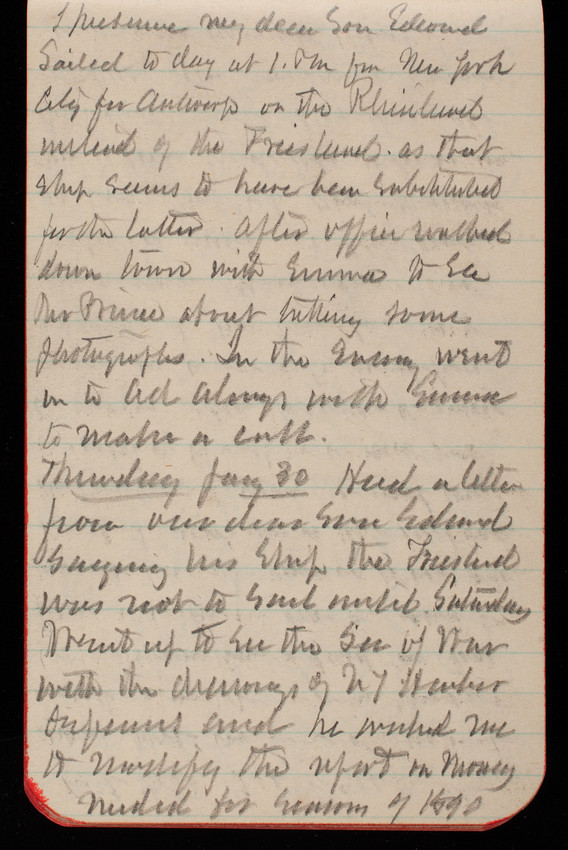 I presume my dear Son Edward
Sailed to day at 1. P.M from New York
City for Antwerp on the Rhineland
instead of the Friesland. as that
Ship seems to have been substituted
for the latter. After office walked
down town with Emma to see
Mr Prince about taking some
photographs. In the Evening went
in to with Emma
to make a call.
Thursday Jany 30 Had a letter
from our dear Son Edward
saying his Ship the Friesland
was not to sail until Saturday
Went up to see the Sec of War
with the drawings of NY Harbor
Defenses and he wished me
to modify the report on Money
needed for Season of 1890